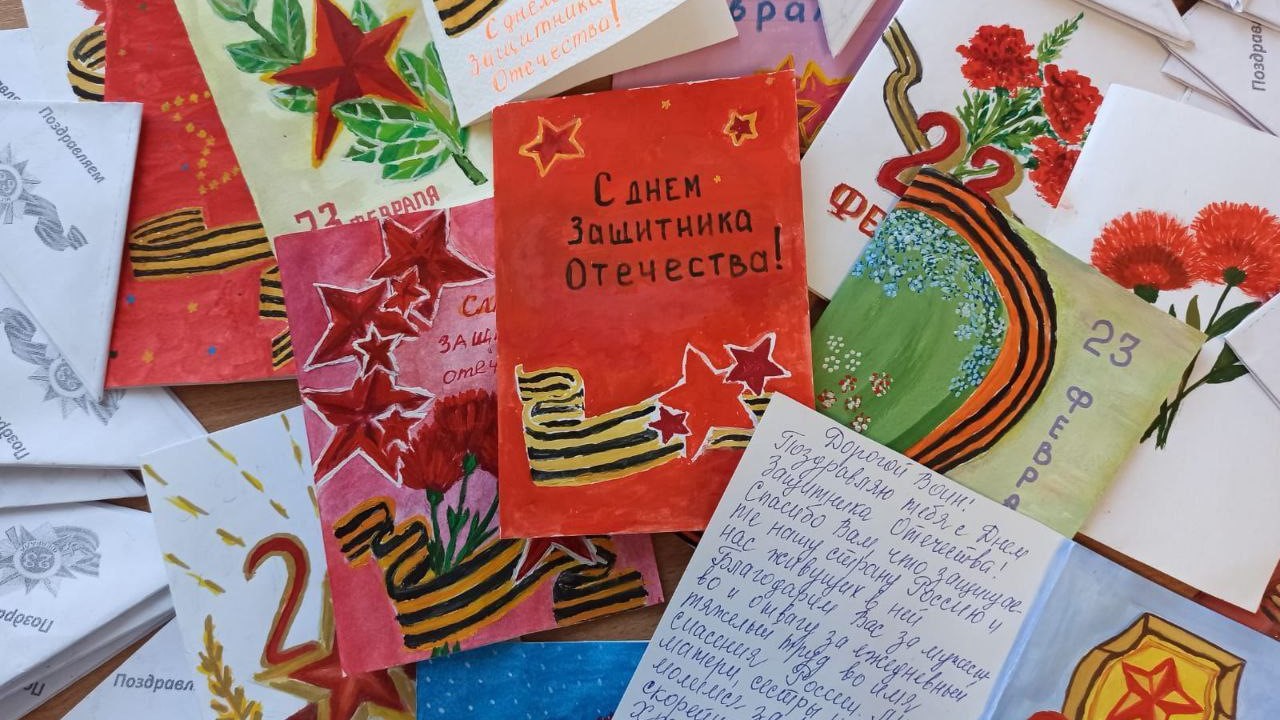 Поздравляем
23 ФЕВРАЛЯ
С днём
Защитника
Отечества!
С ДНЕМ
Защитника
Отечества!
23
ФЕВРА
Дорогой Воин!
Поздравляю тебя с Днем
Защитника Отечества!
Спасибо Вам, что защищае
те нашу страну Россию и
нас живущих в ней
Благодарим Вас за мужест
во и отвагу за ежедневный
тяжелый труд во имя
спасения России.
матери, сестры
молимся за
скорей
Поздрав
Поздравл